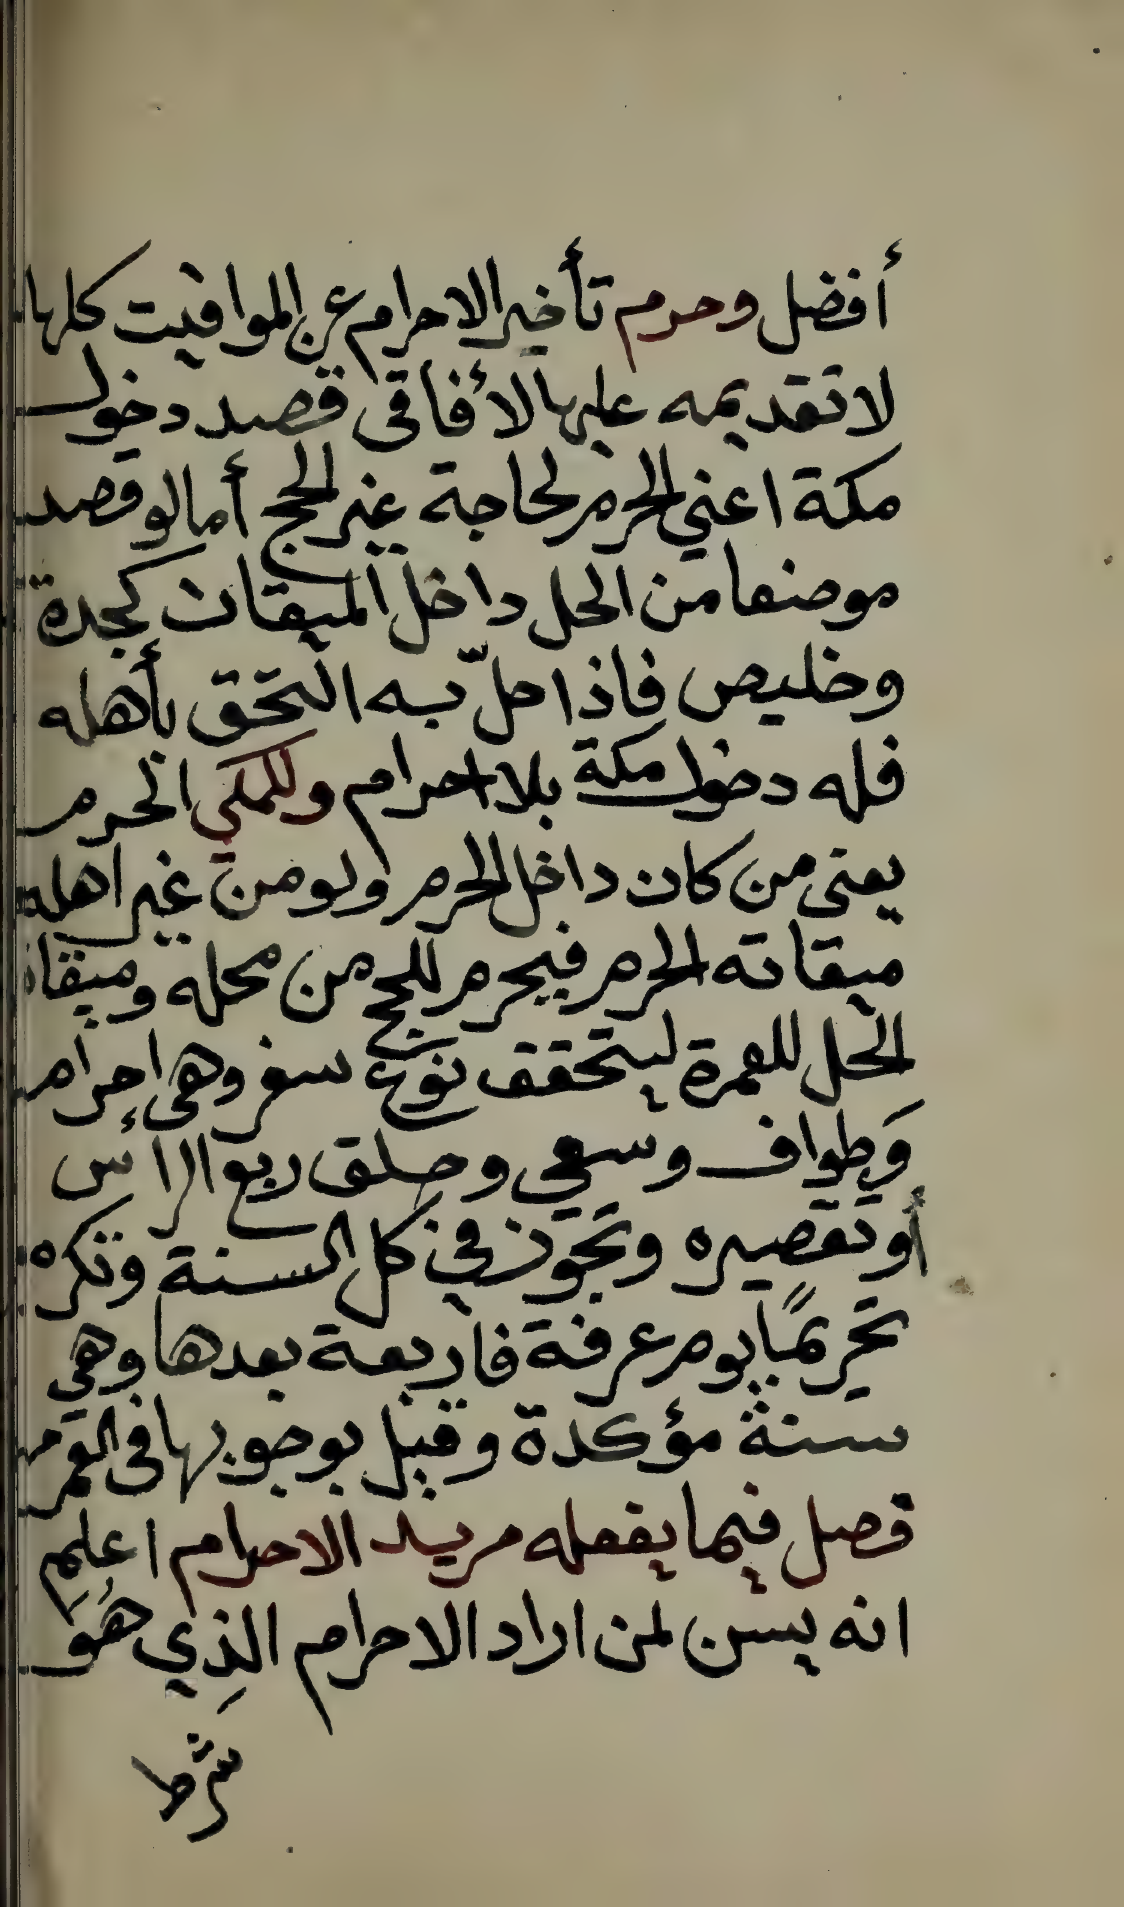 أفضل وحرم تأخير الاحرام عن المواقيت كلها
لا تقديمه عليها لأفاقى قصد دخول
مكة اعني الحرم لحاجة غير الحج أما لو قصد
موضعا من الحل داخل الميقات كجدة
وخليص فاذا حلّ به التحق بأهله
فله دخول مكة بلا احرام وللمكي الحرم
يعنى من كان داخل الحرم ولو من غير اهله
ميقاته الحرم فيحرم للحج من محله وميقات
الحل للعمرة ليتحقق نوع سفر وهى إحرام
وَطواف وسعي وحلق ربع الرأس
أو تقصيره وتجوز في كل السنة وتكره
تحريمًا يوم عرفة فاربعة بعدها وهي
سنة مؤكدة وقيل بوجوبها فى العمر مرة
فصل فيما يفعله مريد الاحرام اعلم
انه يسن لمن اراد الاحرام الذِي هُوَ
شرط